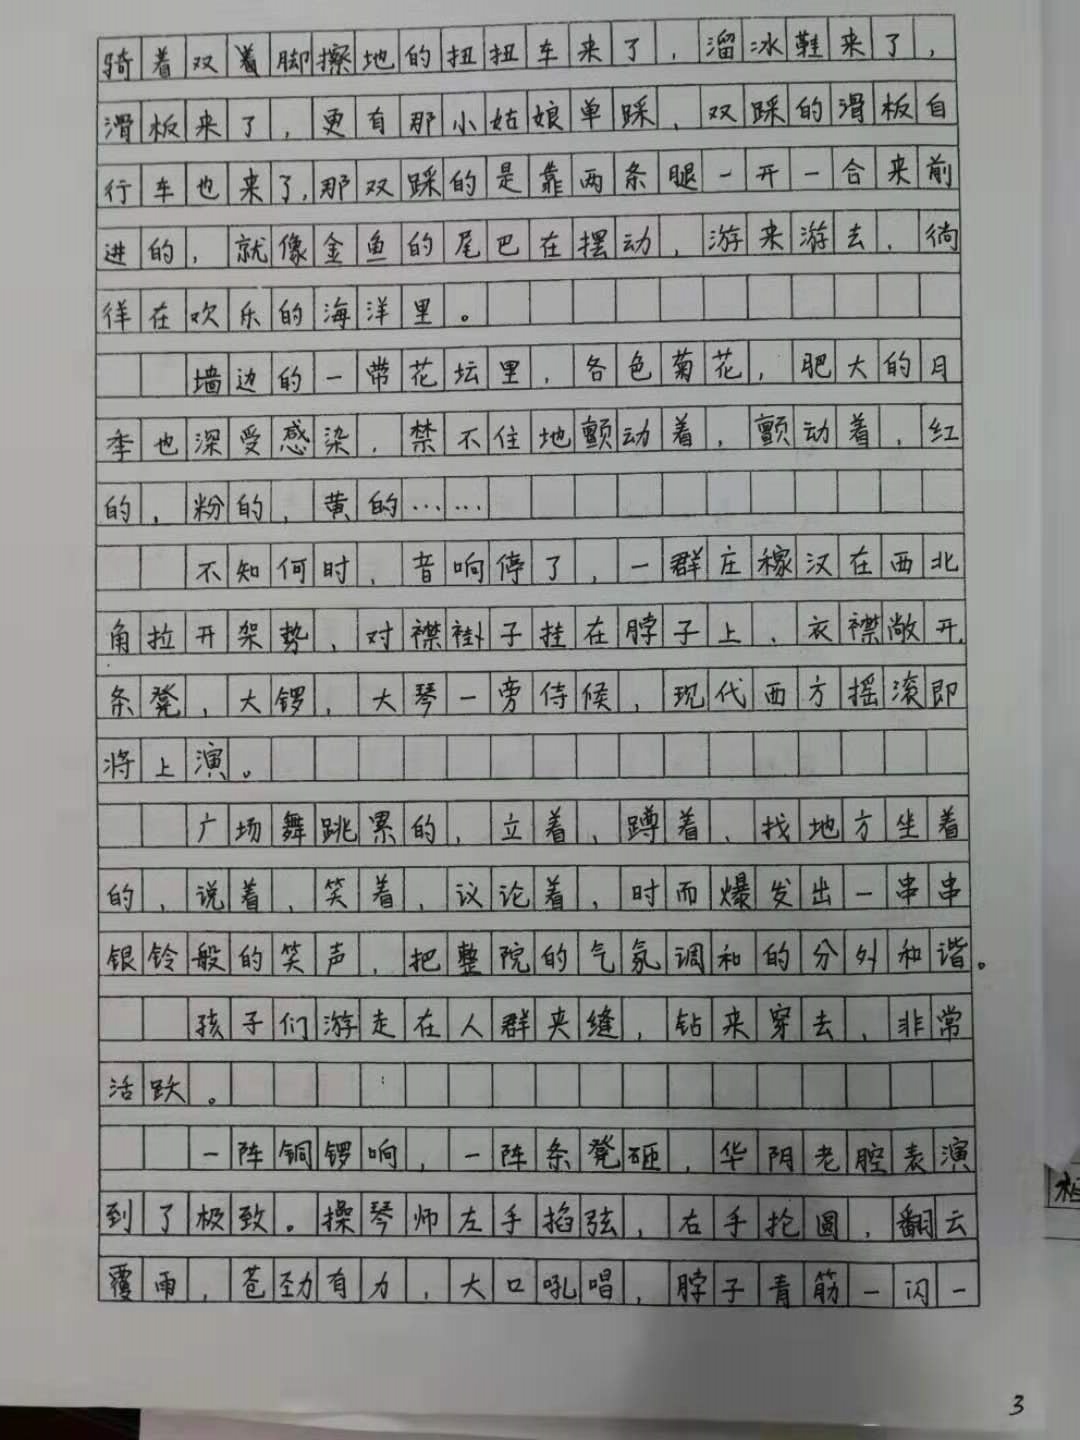 骑着双着脚擦地的扭扭车来了，溜冰鞋来了，
滑板来了，更有那小姑娘单踩、双踩的滑板自
行车也来了，那双踩的是靠两条腿一开一合来前
进的，就像金鱼的尾巴在摆动，游来游去，徜
徉在欢乐的海洋里。
墙边的一带花坛里，各色菊花，肥大的月
季也深受感染，禁不住地颤动着，颤动着，红
的，粉的，黄的……
不知何时，音响停了，一群庄稼汉在西北
角拉开架势，对襟褂子挂在脖子上，衣襟敞开，
条凳，大锣，大琴一旁侍候，现代西方摇滚即
将上演。
广场舞跳累的，立着，蹲着，找地方坐着
的，说着，笑着，议论着，时而爆发出一串串
银铃般的笑声，把整院的气氛调和的分外和谐。
孩子们游走在人群夹缝，钻来穿去，非常
活跃。
一阵铜锣响，一阵条凳砸，华阴老腔表演
到了极致。操琴师左手掐弦，右手抡圆，翻云
覆雨，苍劲有力，大口吼唱，脖子青筋一闪一
3